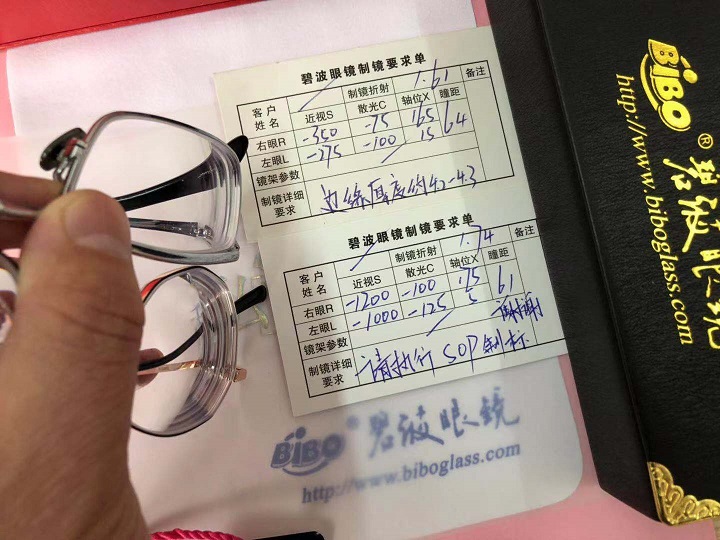 碧波眼镜制镜要求单
客户姓名 制镜折射 1.61 备注
近视S 散光C 轴位X 瞳距
右眼R -350 -75 165 64
左眼L -275 -100 15
镜架参数
制镜详细要求 边缘厚度约4.1-4.3
碧波眼镜制镜要求单
客户姓名 制镜折射 1.74 备注
近视S 散光C 轴位X 瞳距
右眼R -1200 -100 175 61
左眼L -1000 -125 5
镜架参数 谢谢
制镜详细要求 请执行SOP制标
BiBO® 碧波眼镜
http://www.biboglass.com
BiBO® 碧波眼镜
http://www.biboglass.com